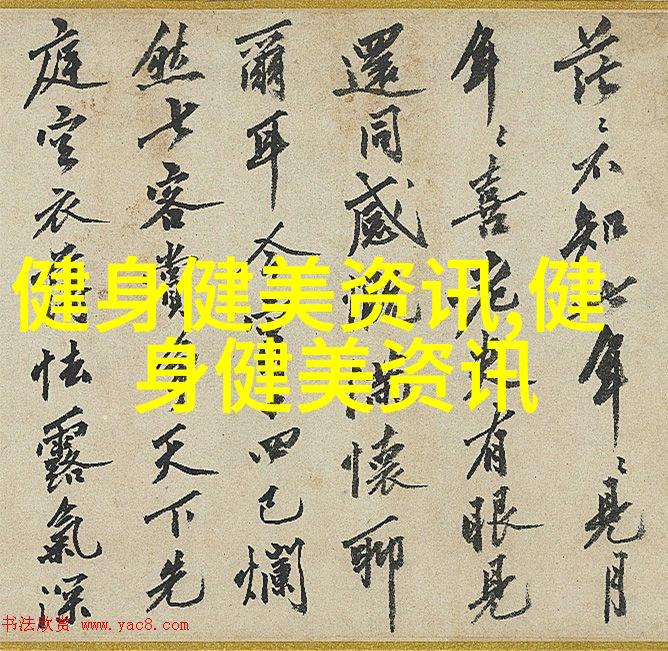 茫々不知年々見月
年々喜有眼見
還同感懷聊
爾耳今四已爛
然七客賞天下先
庭空衣怯露氣深
健身健美资讯,健
身健美资讯
书法欣赏 www.yac8.com